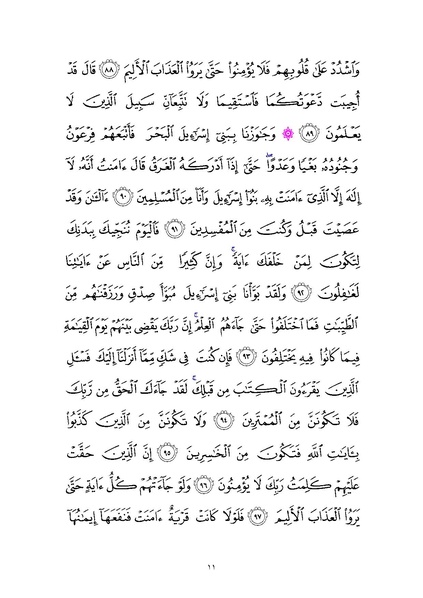 وَٱشْدُدْ عَلَىٰ قُلُوبِهِمْ فَلَا يُؤْمِنُوا۟ حَتَّىٰ يَرَوُا۟ ٱلْعَذَابَ ٱلْأَلِيمَ ﴿٨٨﴾ قَالَ قَدْ
أُجِيبَت دَّعْوَتُكُمَا فَٱسْتَقِيمَا وَلَا تَتَّبِعَآنِّ سَبِيلَ ٱلَّذِينَ لَا
يَعْلَمُونَ ﴿٨٩﴾ ۞ وَجَٰوَزْنَا بِبَنِىٓ إِسْرَٰٓءِيلَ ٱلْبَحْرَ فَأَتْبَعَهُمْ فِرْعَوْنُ
وَجُنُودُهُۥ بَغْيًا وَعَدْوًا ۖ حَتَّىٰٓ إِذَآ أَدْرَكَهُ ٱلْغَرَقُ قَالَ ءَامَنتُ أَنَّهُۥ لَآ
إِلَٰهَ إِلَّا ٱلَّذِىٓ ءَامَنَتْ بِهِۦ بَنُوٓا۟ إِسْرَٰٓءِيلَ وَأَنَا۠ مِنَ ٱلْمُسْلِمِينَ ﴿٩٠﴾ ءَآلْـَٰٔنَ وَقَدْ
عَصَيْتَ قَبْلُ وَكُنتَ مِنَ ٱلْمُفْسِدِينَ ﴿٩١﴾ فَٱلْيَوْمَ نُنَجِّيكَ بِبَدَنِكَ
لِتَكُونَ لِمَنْ خَلْفَكَ ءَايَةً ۚ وَإِنَّ كَثِيرًا مِّنَ ٱلنَّاسِ عَنْ ءَايَٰتِنَا
لَغَٰفِلُونَ ﴿٩٢﴾ وَلَقَدْ بَوَّأْنَا بَنِىٓ إِسْرَٰٓءِيلَ مُبَوَّأَ صِدْقٍ وَرَزَقْنَٰهُم مِّنَ
ٱلطَّيِّبَٰتِ فَمَا ٱخْتَلَفُوا۟ حَتَّىٰ جَآءَهُمُ ٱلْعِلْمُ ۚ إِنَّ رَبَّكَ يَقْضِى بَيْنَهُمْ يَوْمَ ٱلْقِيَٰمَةِ
فِيمَا كَانُوا۟ فِيهِ يَخْتَلِفُونَ ﴿٩٣﴾ فَإِن كُنتَ فِى شَكٍّ مِّمَّآ أَنزَلْنَآ إِلَيْكَ فَسْـَٔلِ
ٱلَّذِينَ يَقْرَءُونَ ٱلْكِتَٰبَ مِن قَبْلِكَ ۚ لَقَدْ جَآءَكَ ٱلْحَقُّ مِن رَّبِّكَ
فَلَا تَكُونَنَّ مِنَ ٱلْمُمْتَرِينَ ﴿٩٤﴾ وَلَا تَكُونَنَّ مِنَ ٱلَّذِينَ كَذَّبُوا۟
بِـَٔايَٰتِ ٱللَّهِ فَتَكُونَ مِنَ ٱلْخَٰسِرِينَ ﴿٩٥﴾ إِنَّ ٱلَّذِينَ حَقَّتْ
عَلَيْهِمْ كَلِمَتُ رَبِّكَ لَا يُؤْمِنُونَ ﴿٩٦﴾ وَلَوْ جَآءَتْهُمْ كُلُّ ءَايَةٍ حَتَّىٰ
يَرَوُا۟ ٱلْعَذَابَ ٱلْأَلِيمَ ﴿٩٧﴾ فَلَوْلَا كَانَتْ قَرْيَةٌ ءَامَنَتْ فَنَفَعَهَآ إِيمَٰنُهَآ
١١